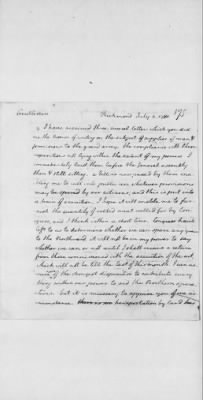 Gentlemen Richmond July 2. 1780. 175
I have received three several letters which you did
me the honor of writing on the subject of supplies of men &
provision to the grand army. the compliance with these
requisitions not lying within the extent of my powers I
immediately laid them before the General assembly
then & still sitting. a bill is now passed by them ena-
bling me to call into public use whatever provisions
may be spared by our citizens, and this is put into
a train of execution. I hope it will enable me to fur-
nish the quantity of salted meat called for by Con-
gress, and I think within a short time. Congress have
left to us to determine whether we can spare any
to the Northward. it will not be in my power to say
whether we can or not until I shall receive a return
from those commissioned with the execution of the act
which will not be till the last of this month. I can as-
sure of the strongest disposition to contribute every
thing within our power to aid the Northern opera-
tions. but it is necessary to apprise you of one cir-
cumstance. transportation by land has